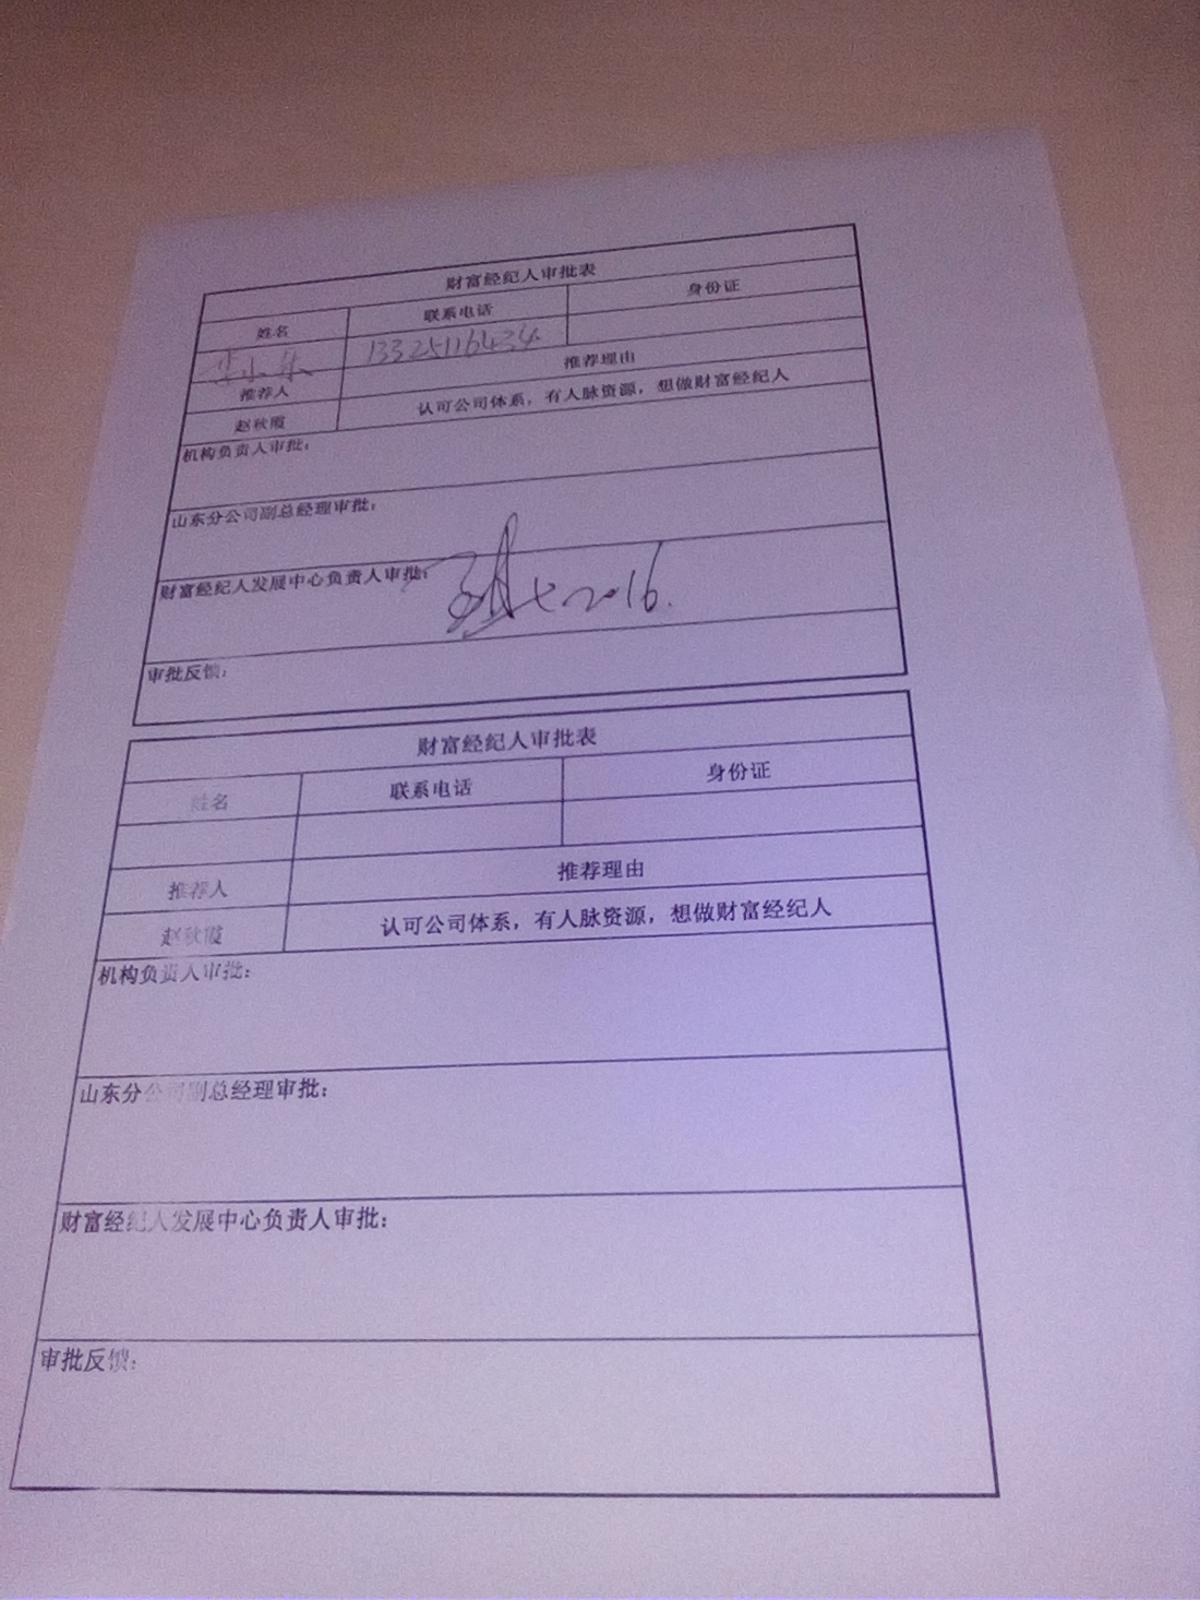 财富经纪人审批表
姓名 联系电话 身份证
李小朱 13325116434
推荐人 推荐理由
赵秋霞 认可公司体系，有人脉资源，想做财富经纪人
机构负责人审批：
山东分公司副总经理审批：
财富经纪人发展中心负责人审批：
2016.
审批反馈：
财富经纪人审批表
姓名 联系电话 身份证
推荐人 推荐理由
赵秋霞 认可公司体系，有人脉资源，想做财富经纪人
机构负责人审批：
山东分公司副总经理审批：
财富经纪人发展中心负责人审批：
审批反馈：